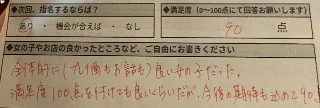 ◆次回、指名するならば？
あり ・ 機会が合えば ・ なし
◆満足度（0～100点にて回答お願いします）
90 点
◆女の子やお店の良かったところなど、ご自由にお書きください
全体的に（プレイ面もお話も）良い女の子だった。
満足度100点を付けても良いくらいだが、今後の期待も込め90